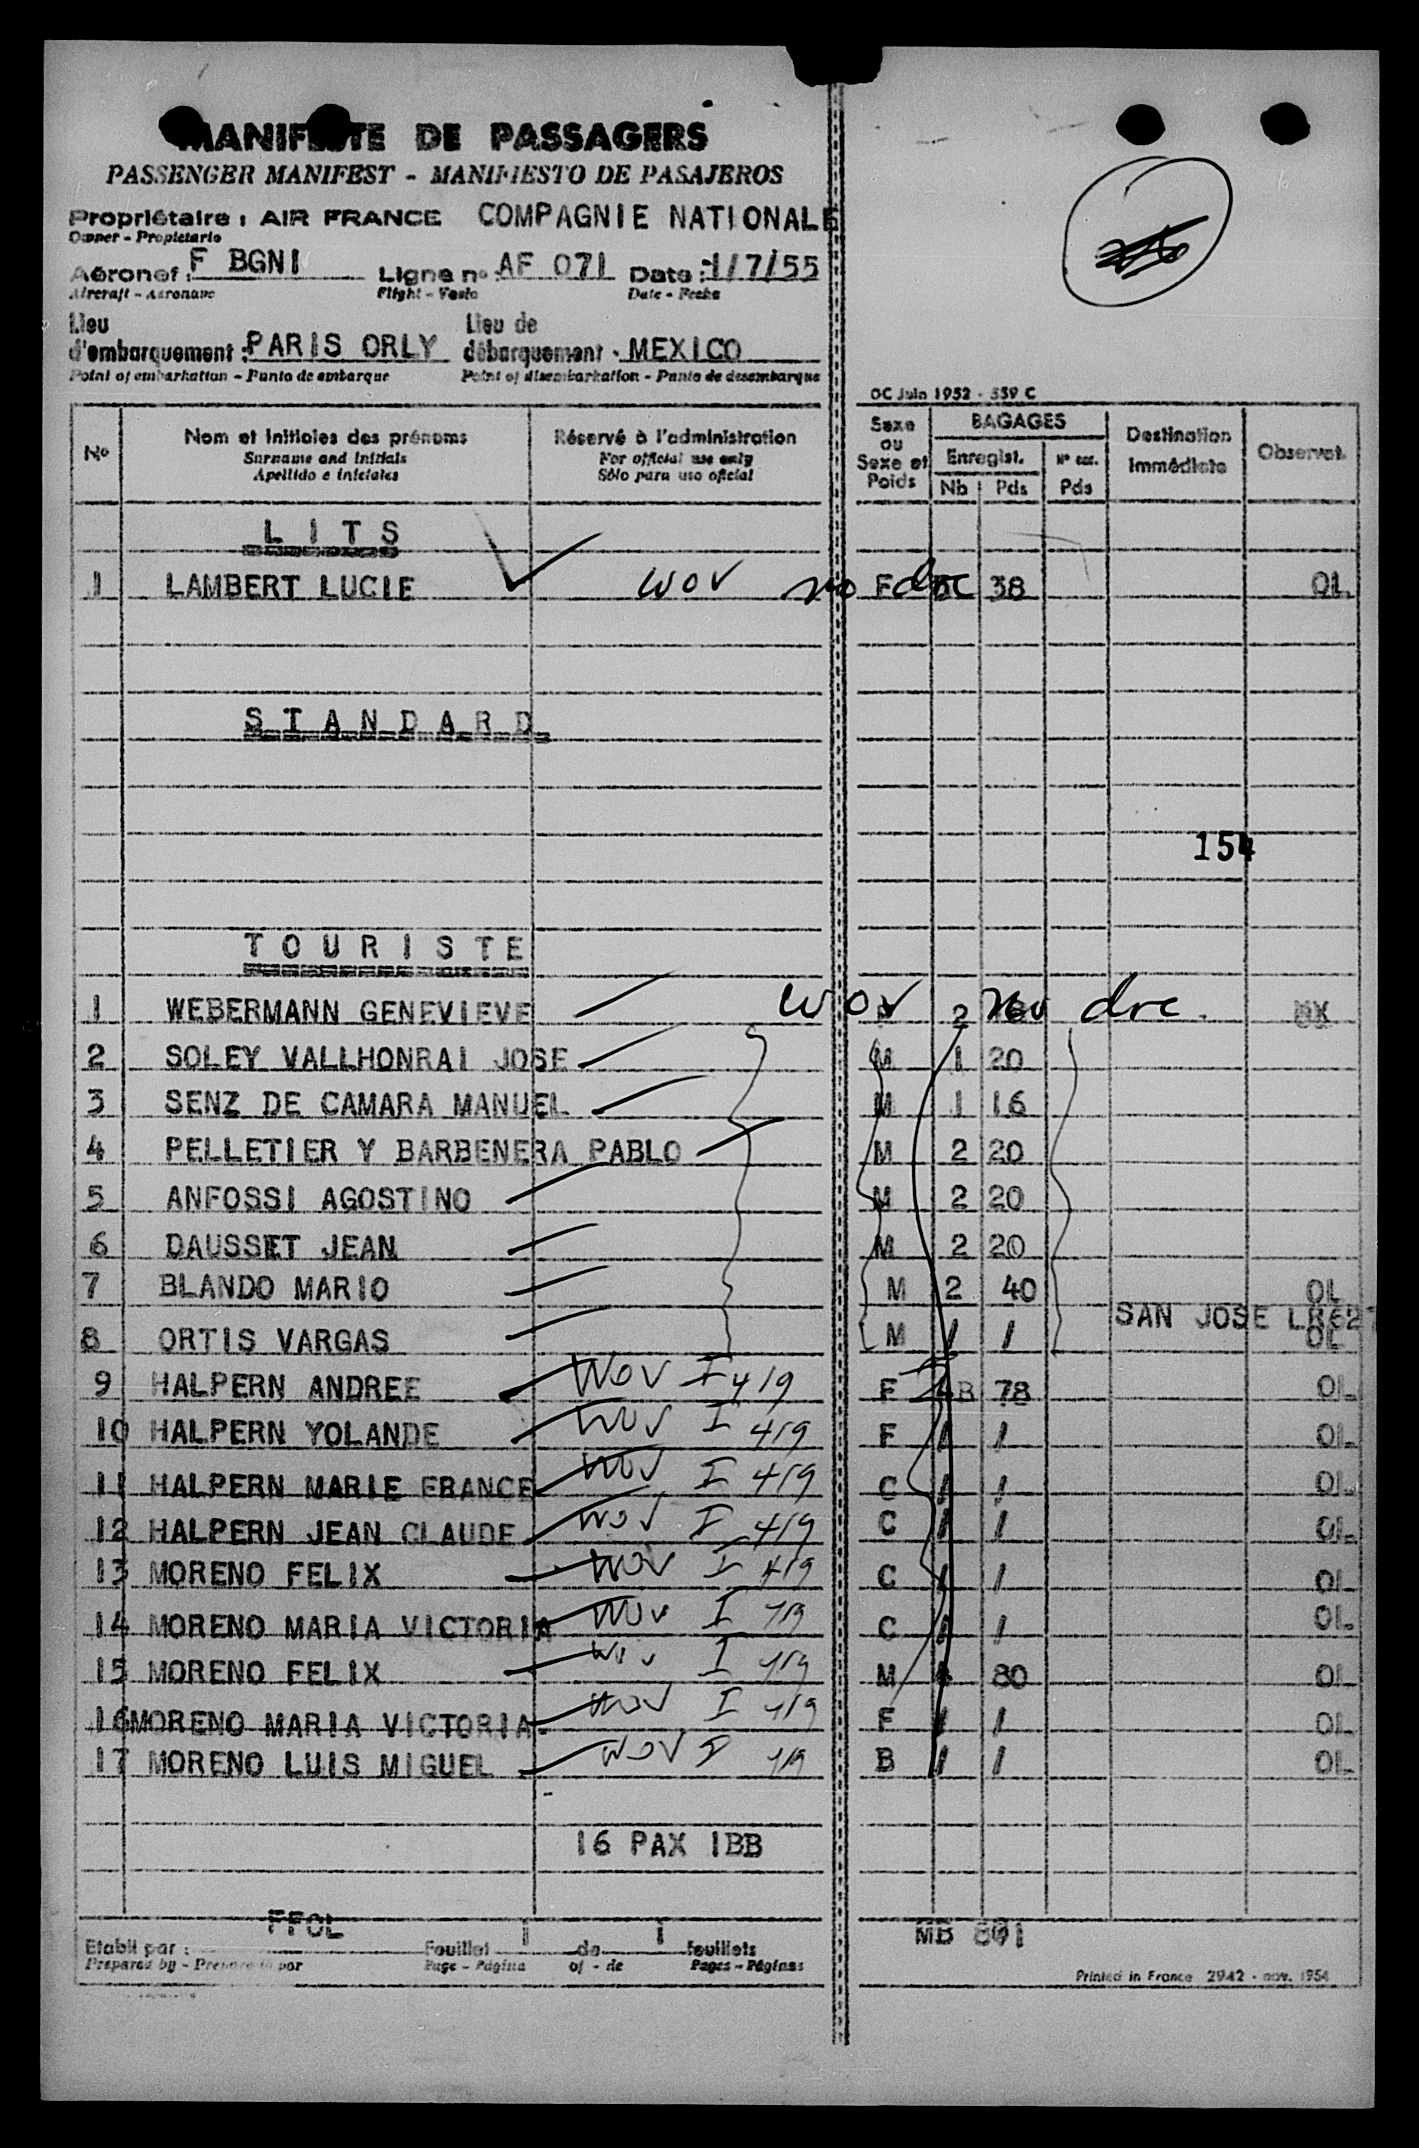 MANIFESTE DE PASSAGERS
PASSENGER MANIFEST - MANIFIESTO DE PASAJEROS
Propriétaire : AIR FRANCE COMPAGNIE NATIONALE
Owner - Propietario
Aéronef : F BGNI Ligne n° AF 071 Date : 1/7/55
Aircraft - Aeronave Flight - Vuelo Date - Fecha
Lieu d'embarquement : PARIS ORLY Lieu de débarquement : MEXICO
Point of embarkation - Punto de embarque Point of disembarkation - Punto de desembarque
OC Juin 1952 - 559 C
N° Nom et initiales des prénoms Réservé à l'administration Sexe ou Sexe et Poids BAGAGES Destination immédiate Observat.
Surname and initials For official use only Enregist. N° exc.
Apellido e iniciales Sólo para uso oficial Nb Pds Pds
LITS
1 LAMBERT LUCIE WOV no F doc 38 OL
STANDARD
154
TOURISTE
1 WEBERMANN GENEVIEVE WOV 2 doc
2 SOLEY VALLHONRAI JOSE M 1 20
3 SENZ DE CAMARA MANUEL M 1 16
4 PELLETIER Y BARBENERA PABLO M 2 20
5 ANFOSSI AGOSTINO M 2 20
6 DAUSSET JEAN M 2 20
7 BLANDO MARIO M 2 40 OL
SAN JOSE LR62
8 ORTIS VARGAS M / / OL
9 HALPERN ANDREE WOV I 419 F 78 OL
10 HALPERN YOLANDE WOV I 419 F / / OL
11 HALPERN MARIE FRANCE WOV I 419 C / / OL
12 HALPERN JEAN CLAUDE WOV I 419 C / / OL
13 MORENO FELIX WOV I 419 C / / OL
14 MORENO MARIA VICTORIA WOV I 419 C / / OL
15 MORENO FELIX WOV I 419 M 80 OL
16 MORENO MARIA VICTORIA WOV I 419 F / / OL
17 MORENO LUIS MIGUEL WOV I 419 B / / OL
16 PAX 1BB
Etabli par : FFOL Feuillet 1 de 1 feuillets MB
Prepared by - Preparado por Page - Página of - de Pages - Páginas
Printed in France 2942 - nov. 1954